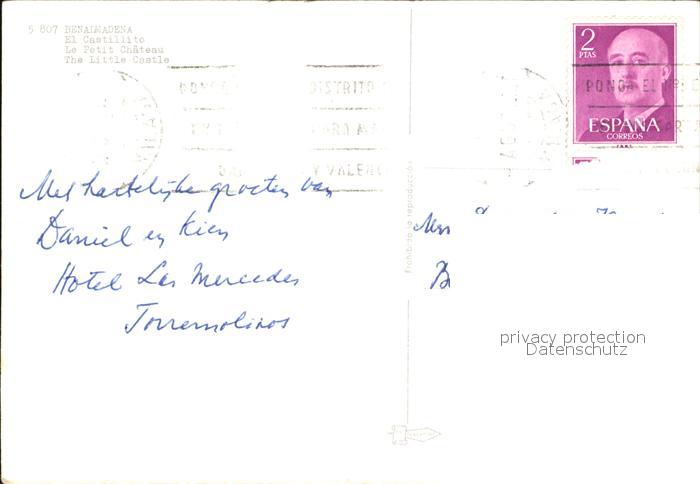 5 807 BENALMADENA
El Castillito
Le Petit Château
The Little Castle
2
PTAS
ESPAÑA
CORREOS
F.N.M.T.
PONGA DISTRITO
PONGA EL
Y VALENC
Met hartelijke groeten van
Daniel en Kien
Hotel Las Mercedes
Torremolinos
Prohibida la reproducción
B
privacy protection
Datenschutz